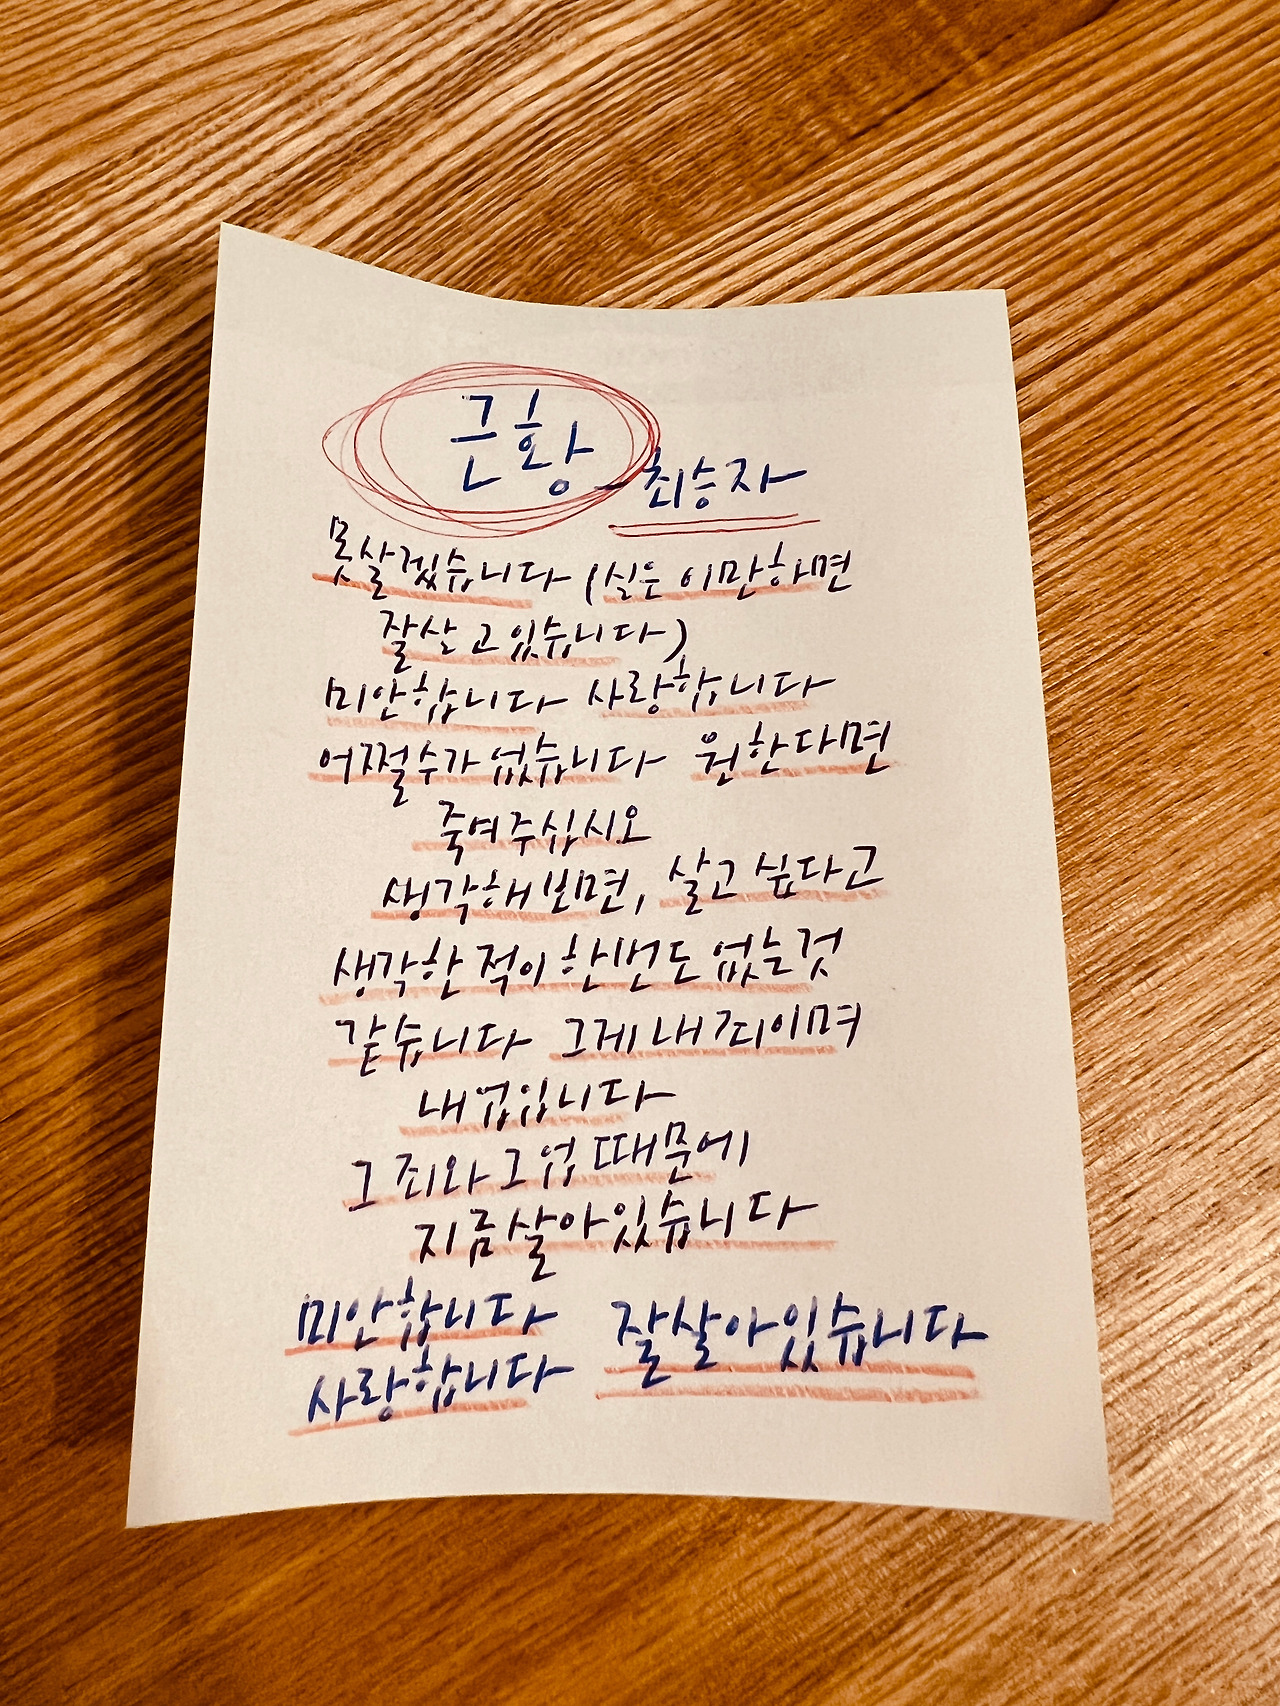 근황 - 최승자
못살겠습니다 (실은 이만하면
잘살고 있습니다)
미안합니다 사랑합니다
어쩔수가 없습니다 원한다면
죽여주십시오
생각해보면, 살고 싶다고
생각한 적이 한번도 없는것
같습니다 그게 내 죄이며
내 업입니다
그 죄와 그 업 때문에
지금살아있습니다
미안합니다 잘살아있습니다
사랑합니다